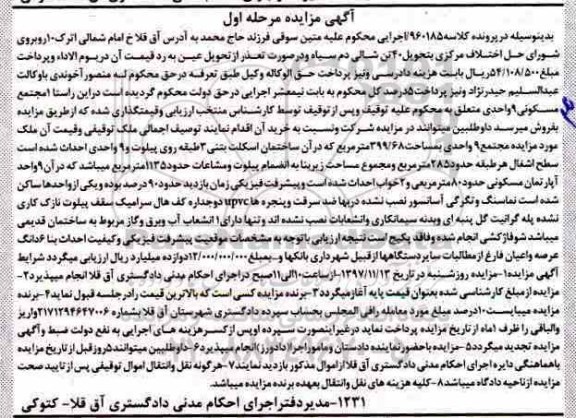 آگهی مزایده مرحله اول
بدینوسیله در پرونده کلاسه ۹۶۰۱۸۵/اجرایی محکوم علیه متین سوقی فرزند حاج محمد به آدرس آق قلا خ امام شمالی اترک ۱۰ روبروی
شورای حل اختلاف مرکزی بتحویل ۴۰ تن شالی دم سیاه ودرصورت تعذر از تحویل عین به رد قیمت آن در یوم الاداء وپرداخت
مبلغ ۵۴/۱۰۸/۵۰۰ ریال بابت هزینه دادرسی ونیز پرداخت حق الوکاله وکیل طبق تعرفه درحق محکوم له منصور آخوندی باوکالت
عبدالسلیم حیدرنژاد ونیز پرداخت ۵درصد کل محکوم به بابت نیمعشر اجرایی درحق دولت محکوم گردیده است دراین راستا ۱مجتمع
مسکونی ۹واحدی متعلق به محکوم علیه توقیف وپس از توقیف توسط کارشناس منتخب ارزیابی وقیمتگذاری شده که ازطریق مزایده
بفروش میرسد داوطلبین میتوانند در مزایده شرکت ونسبت به خرید آن اقدام نمایند توصیف اجمالی ملک توقیفی وقیمت آن ملک
مورد مزایده مجتمع ۹ واحدی بمساحت ۳۹۹/۶۸مترمربع که درآن ساختمان اسکلت بتنی ۳طبقه روی پیلوت و۹ واحدی احداث شده است
سطح اشغال هرطبقه حدود ۲۸۵مترمربع ومجموع مساحت زیربنا به انضمام پیلوت ومشاعات حدود ۱۱۳۵مترمربع میباشد که درآن ۹واحد
آپارتمان مسکونی حدود ۸۰مترمربعی و۲خواب احداث شده است وپیشرفت فیزیکی زمان بازدید حدود ۹۰ درصد بوده ویکی ازواحدها ساکن
شده است نماسنگ ونگرگی آسانسور نصب نشده دربها ضد سرقت وپنجره ها upvc دوجداره کف هال سرامیک سقف پیلوت نازک کاری
نشده پله گرانیت گل پنبه ای وبدنه سیمانکاری وانشعابات نصب نشده اند وتنها دارای ۱ انشعاب آب وبرق وگاز مربوط به ساختمان قدیمی
میباشد شوفاژکشی انجام شده وفاقد پکیج است نتیجه ارزیابی باتوجه به مشخصات موقعیت پیشرفت فیزیکی وکیفیت احداث بنا ۶دانگ
عرصه واعیان فارغ ازمطالبات سایر دستگاهها از قبیل شهرداری بانکها و... بمبلغ ۱۲/۰۰۰/۰۰۰/۰۰۰دوازده میلیارد ریال ارزیابی میگردد شرایط
آگهی مزایده؛ ۱-مزایده روزشنبه در تاریخ ۱۳۹۷/۱۱/۱۳ازساعت ۱۰الی ۱۱صبح دراجرای احکام مدنی دادگستری آق قلا انجام میپذیرد ۲-
مزایده ازمبلغ کارشناسی شده بعنوان قیمت پایه آغاز میگردد ۳-برنده مزایده کسی است که بالاترین قیمت رادرجلسه قبول نماید ۴-برنده
مزایده میبایست ۱۰درصد مبلغ مورد معامله رافی المجلس بحساب سپرده دادگستری شهرستان آق قلا بشماره ۲۱۷۱۲۹۴۶۴۷۰۰۶واریز
والباقی را ظرف ۱ماه از تاریخ مزایده پرداخت نماید درغیراینصورت سپرده اوپس از کسر هزینه های اجرایی به نفع دولت ضبط وآگهی
مزایده تجدید میگردد ۵-مزایده باحضور نماینده دادستان ومامور اجرا(دادورز)انجام میپذیرد ۶-داوطلبین میتوانند ۵روز قبل از تاریخ مزایده
باهماهنگی دایره اجرای احکام مدنی دادگستری آق قلا از اموال مذکور بازدید نمایند ۷-هرگونه نقل وانتقال اموال توقیفی پس از تایید صحت
مزایده ازناحیه دادگاه میباشد ۸-کلیه هزینه های نقل وانتقال بعهده برنده مزایده میباشد.
۱۲۳۱-مدیر دفتر اجرای احکام مدنی دادگستری آق قلا- کتوکی